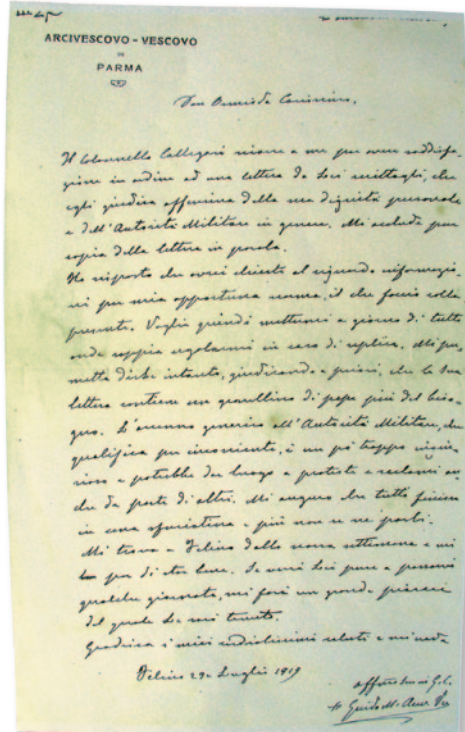 ARCIVESCOVO - VESCOVO
DI
PARMA
Don Ormisda Carissimo,
Il Colonnello Callegari ricorre a me per avere soddisfa-
zione in ordine ad una lettera da Lei scrittagli, che
egli giudica offensiva della sua dignità personale
e dell'Autorità Militare in genere. Mi acclude pure
copia della lettera in parola.
Ho risposto che avrei chiesto al riguardo informazio-
ni per mia opportuna norma, il che faccio colla
presente. Voglia quindi mettermi a giorno di tutto
onde sappia regolarmi in caso di replica. Mi per-
metta dirle intanto, giudicando a priori, che la Sua
lettera contiene un granellino di pepe più del biso-
gno. L'accenno generico all'Autorità Militare, che
qualifica per incosciente, è un pò troppo
e potrebbe dar luogo a proteste e reclami an-
che da parte di altri. Mi auguro che tutto finisca
in una sfuriatina e più non se ne parli.
Mi trovo a Felino dalla scorsa settimana e mi
par di star bene. Se verrà Lei pure a passarvi
qualche giornata, mi farà un grande piacere
del quale Le sarò tenuto.
Gradisca i miei cordialissimi saluti e mi creda
Felino 29 Luglio 1919
+ Guido M. Arciv. Ves